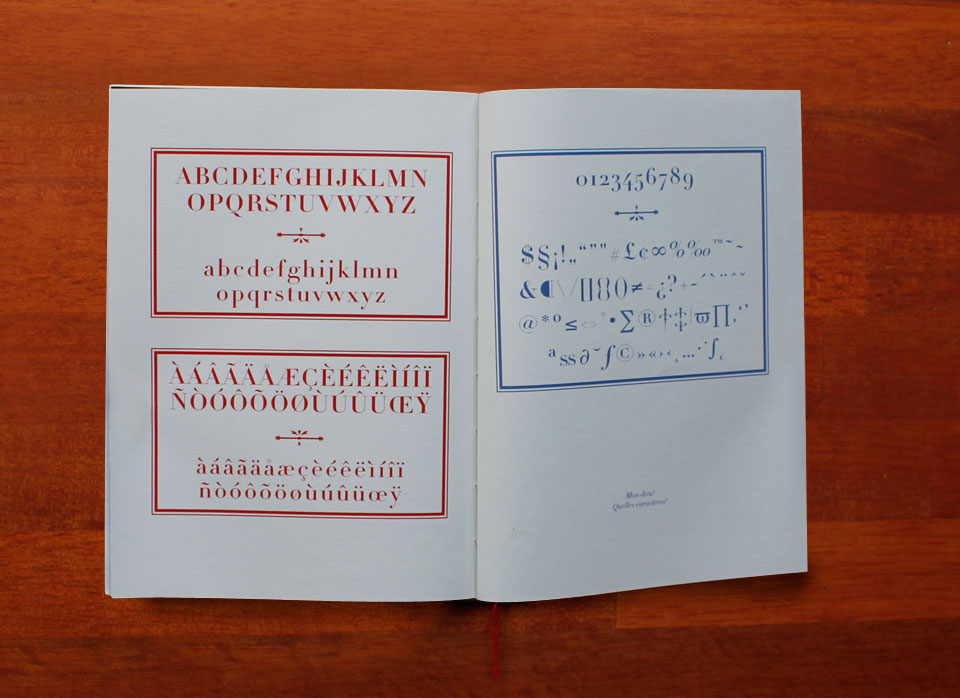 ABCDEFGHIJKLMN
OPQRSTUVWXYZ
abcdefghijklmn
opqrstuvwxyz
ÀÁÂÃÄÅÆÇÈÉÊËÌÍÎÏ
ÑÒÓÔÕÖØÙÚÛÜŒŸ
àáâãäåæçèéêëìíîï
ñòóôõöøùúûüœÿ
0123456789
$§¡!„“”"#£¢∞%‰™˜~
&¶\/[]{}()≠=¿?+-´`¨ˆˇ
@*º≤<>°•∑®†‡|ϖ∏‚‘’
ªss∂˘ƒ©»«›‹¸…⋰∫˛
Mon dieu!
Quelles caractères!